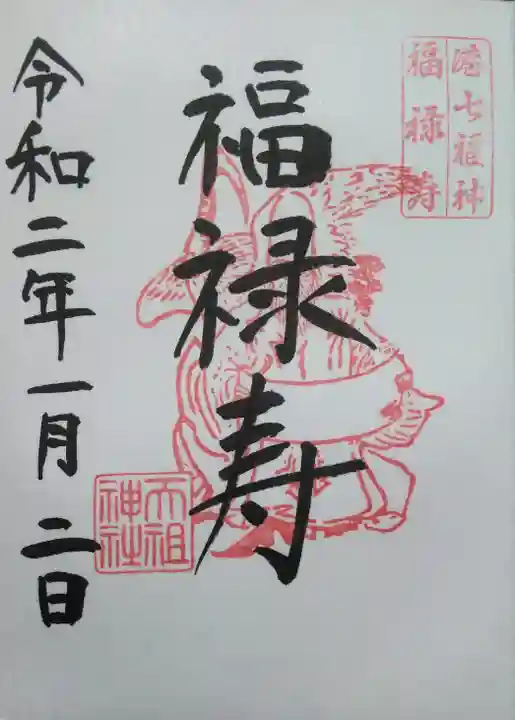 港七福神
福禄寿
福禄寿
天祖神社
令和二年一月二日